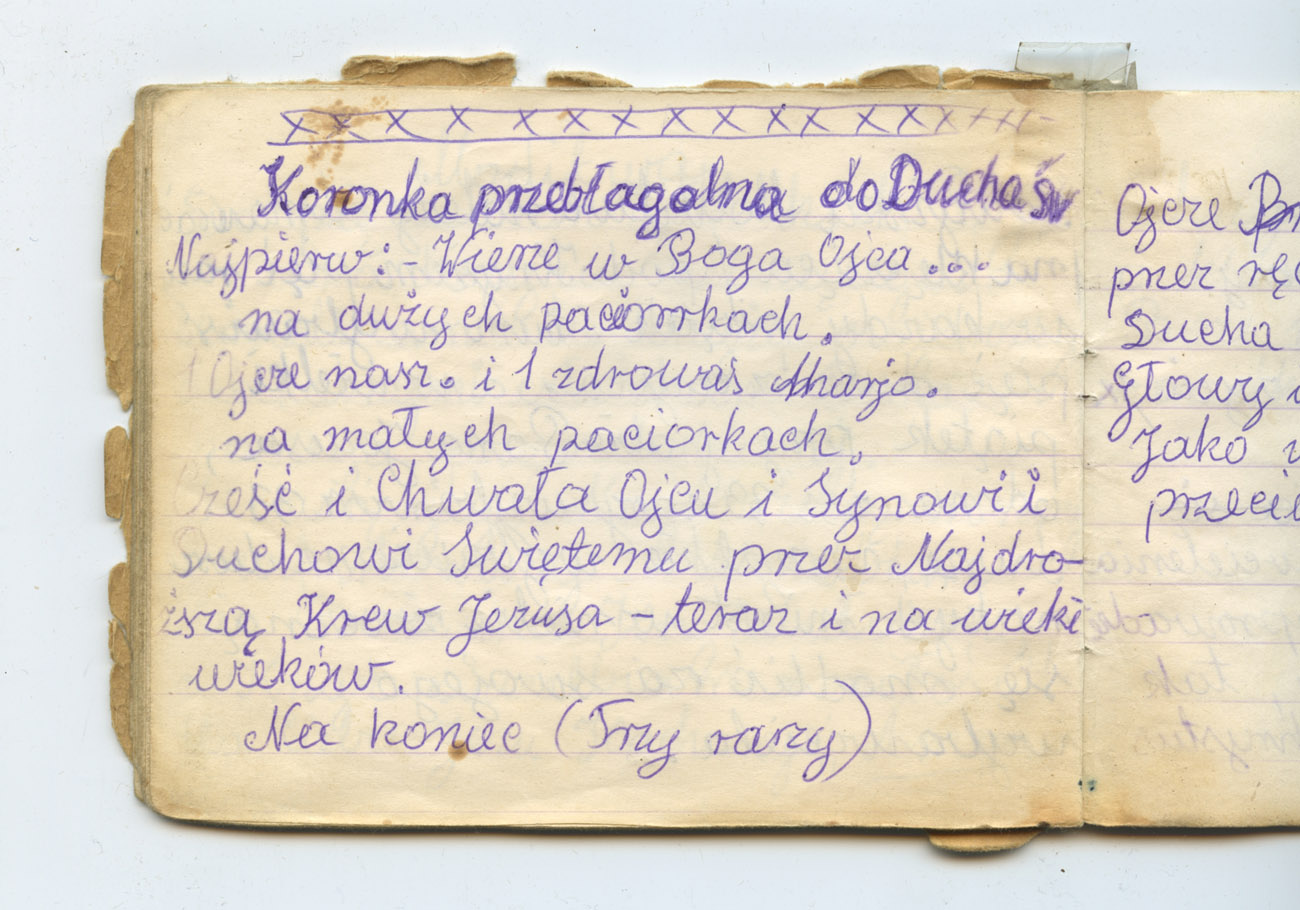 x x x x x x x x x x x x x x x x
Koronka przebłagalna do Ducha Św
Najpierw:- Wierze w Boga Ojca...
na dużych paciorkach.
1 Ojcze nasz. i 1 zdrowaś Marjo.
na małych paciorkach.
Cześć i Chwała Ojcu i Synowi i
Duchowi Swiętemu przez Najdro-
ższą Krew Jezusa - teraz i na wieki
wieków.
Na koniec (Trzy razy)
Ojcze
przez
Ducha
Głowy
Jako